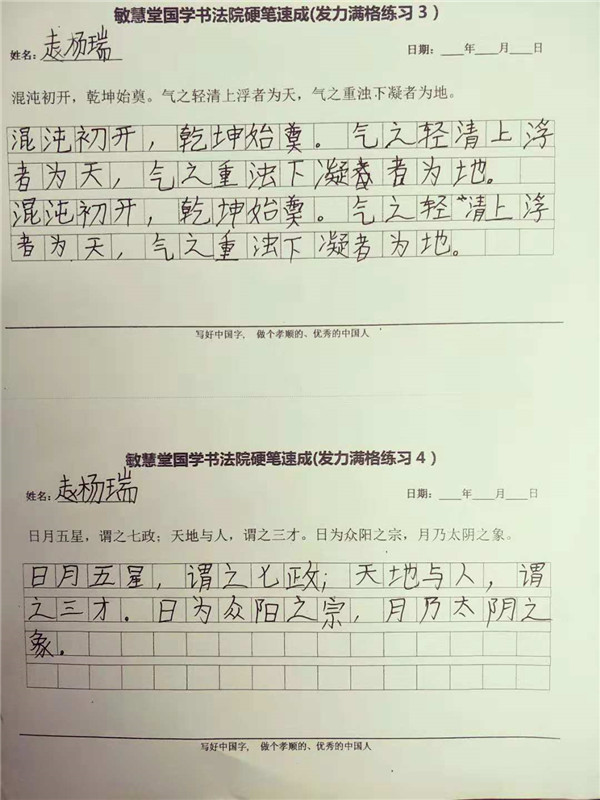 敏慧堂国学书法院硬笔速成(发力满格练习3)
姓名：赵杨瑞 日期：___年___月___日
混沌初开，乾坤始奠。气之轻清上浮者为天，气之重浊下凝者为地。
混沌初开，乾坤始奠。气之轻清上浮
者为天，气之重浊下凝者者为地。
混沌初开，乾坤始奠。气之轻清上浮
者为天，气之重浊下凝者为地。
写好中国字，做个孝顺的、优秀的中国人
敏慧堂国学书法院硬笔速成(发力满格练习4)
姓名：赵杨瑞 日期：___年___月___日
日月五星，谓之七政；天地与人，谓之三才。日为众阳之宗，月乃太阴之象。
日月五星，谓之七政；天地与人，谓
之三才。日为众阳之宗，月乃太阴之
象。
写好中国字，做个孝顺的、优秀的中国人